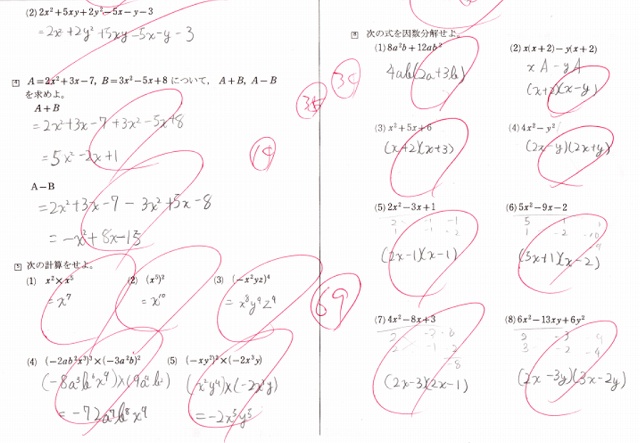 (2) 2x²+5xy+2y²−5x−y−3
=2x²+2y²+5xy−5x−y−3
4 A=2x²+3x−7, B=3x²−5x+8 について, A+B, A−B
を求めよ。
A+B
=2x²+3x−7+3x²−5x+8
=5x²−2x+1
A−B
=2x²+3x−7−3x²+5x−8
=−x²+8x−15
5 次の計算をせよ。
(1) x²×x⁵
=x⁷
(2) (x⁵)²
=x¹⁰
(3) (−x²yz)⁴
=x⁸y⁴z⁴
(4) (−2ab²x³)³×(−3a²b)²
(−8a³b⁶x⁹)×(9a⁴b²)
=−72a⁷b⁸x⁹
(5) (−xy²)²×(−2x³y)
(x²y⁴)×(−2x³y)
=−2x⁵y⁵
19
36
69
6 次の式を因数分解せよ。
(1) 8a²b+12ab²
4ab(2a+3b)
(2) x(x+2)−y(x+2)
xA−yA
(x+2)(x−y)
(3) x²+5x+6
(x+2)(x+3)
(4) 4x²−y²
(2x−y)(2x+y)
(5) 2x²−3x+1
2 −1 −1
1 −1 −2
(2x−1)(x−1)
(6) 5x²−9x−2
5 1 1
1 −2 −10
(5x+1)(x−2)
(7) 4x²−8x+3
2 −3 −6
2 −1 −2
−8
(2x−3)(2x−1)
(8) 6x²−13xy+6y²
2 −3 −9
3 −2 −4
(2x−3y)(3x−2y)